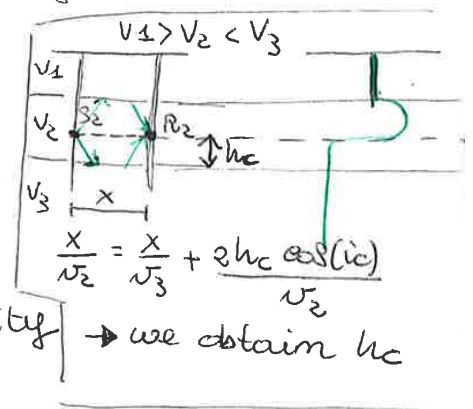 V1 > V2 < V3
V1
V2
S2
R2
hc
V3
x
x/v2 = x/v3 + 2hc cos(ic)/v2
ty → we obtain hc